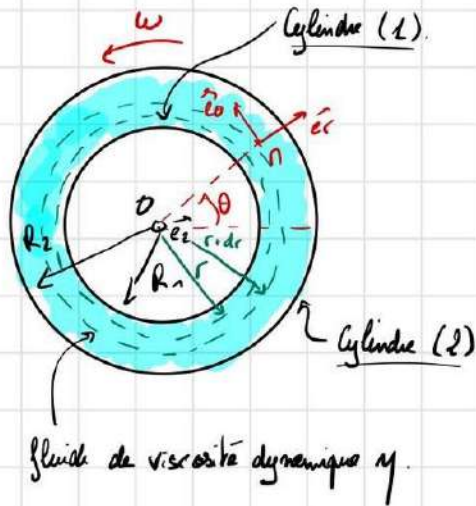 ω
Cylindre (1).
e_θ
e_r
M
O
θ
e_z
r+dr
R_2
R_1
r
Cylindre (2)
fluide de viscosité dynamique η.